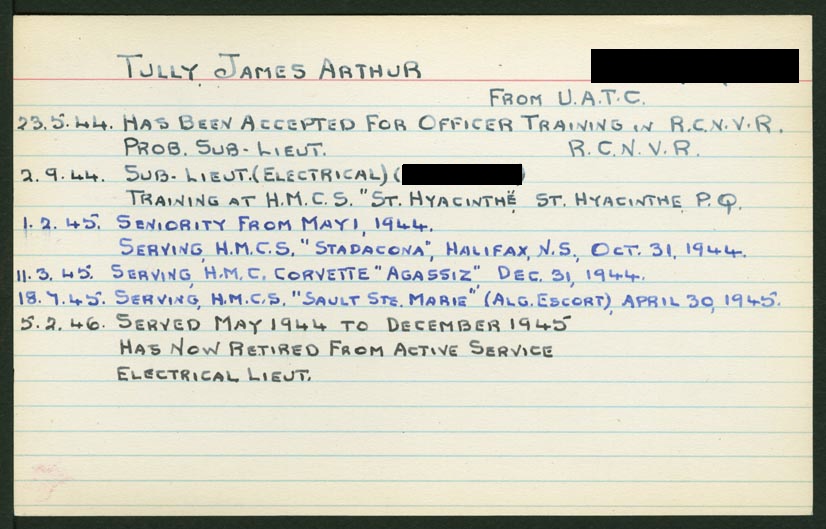 TULLY, JAMES ARTHUR
FROM U.A.T.C.
23.5.44. HAS BEEN ACCEPTED FOR OFFICER TRAINING IN R.C.N.V.R.
PROB. SUB-LIEUT. R.C.N.V.R.
2.9.44. SUB-LIEUT.(ELECTRICAL) ( )
TRAINING AT H.M.C.S. "ST. HYACINTHE", ST. HYACINTHE, P.Q.
1.2.45. SENIORITY FROM MAY 1, 1944.
SERVING, H.M.C.S. "STADACONA", HALIFAX, N.S., OCT. 31, 1944.
11.3.45. SERVING, H.M.C. CORVETTE "AGASSIZ", DEC. 31, 1944.
18.7.45. SERVING, H.M.C.S. "SAULT STE. MARIE" (ALG. ESCORT), APRIL 30, 1945.
5.2.46. SERVED MAY 1944 TO DECEMBER 1945
HAS NOW RETIRED FROM ACTIVE SERVICE
ELECTRICAL LIEUT.